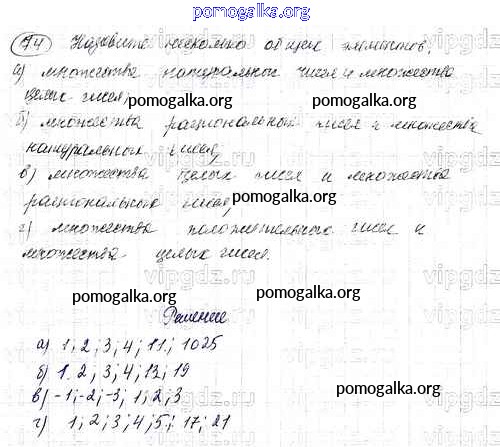 pomogalka.org
74 Назовите несколько общих элементов:
а) множества натуральных чисел и множества
целых чисел;
pomogalka.org pomogalka.org
б) множества рациональных чисел и множества
натуральных чисел;
в) множества целых чисел и множества
pomogalka.org
рациональных чисел;
г) множества положительных чисел и
множества целых чисел.
pomogalka.org pomogalka.org
Решение
а) 1; 2; 3; 4; 11; 1025
б) 1. 2; 3; 4; 13; 19
pomogalka.org
в) -1; -2; -3; 1; 2; 3
г) 1; 2; 3; 4; 5; 17; 21
pomogalka.org